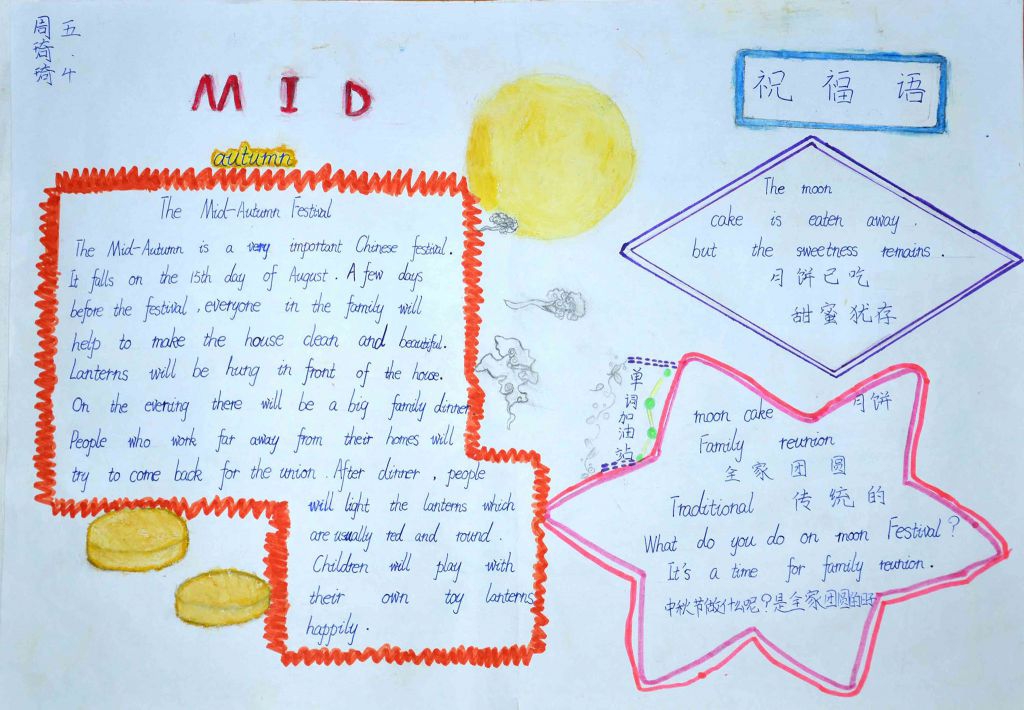 五.4
周琦琦
MID
autumn
The Mid-Autumn Festival
The Mid-Autumn is a very important Chinese festival.
It falls on the 15th day of August. A few days
before the festival, everyone in the family will
help to make the house clean and beautiful.
Lanterns will be hung in front of the house.
On the evening there will be a big family dinner
People who work far away from their homes will
try to come back for the union. After dinner, people
will light the lanterns which
are usually red and round.
Children will play with
their own toy lanterns
happily.
祝福语
The moon
cake is eaten away.
but the sweetness remains.
月饼已吃
甜蜜犹存
单词加油站
moon cake 月饼
Family reunion
全家团圆
Traditional 传统的
What do you do on moon Festival?
It's a time for family reunion.
中秋节做什么呢?是全家团圆的日子